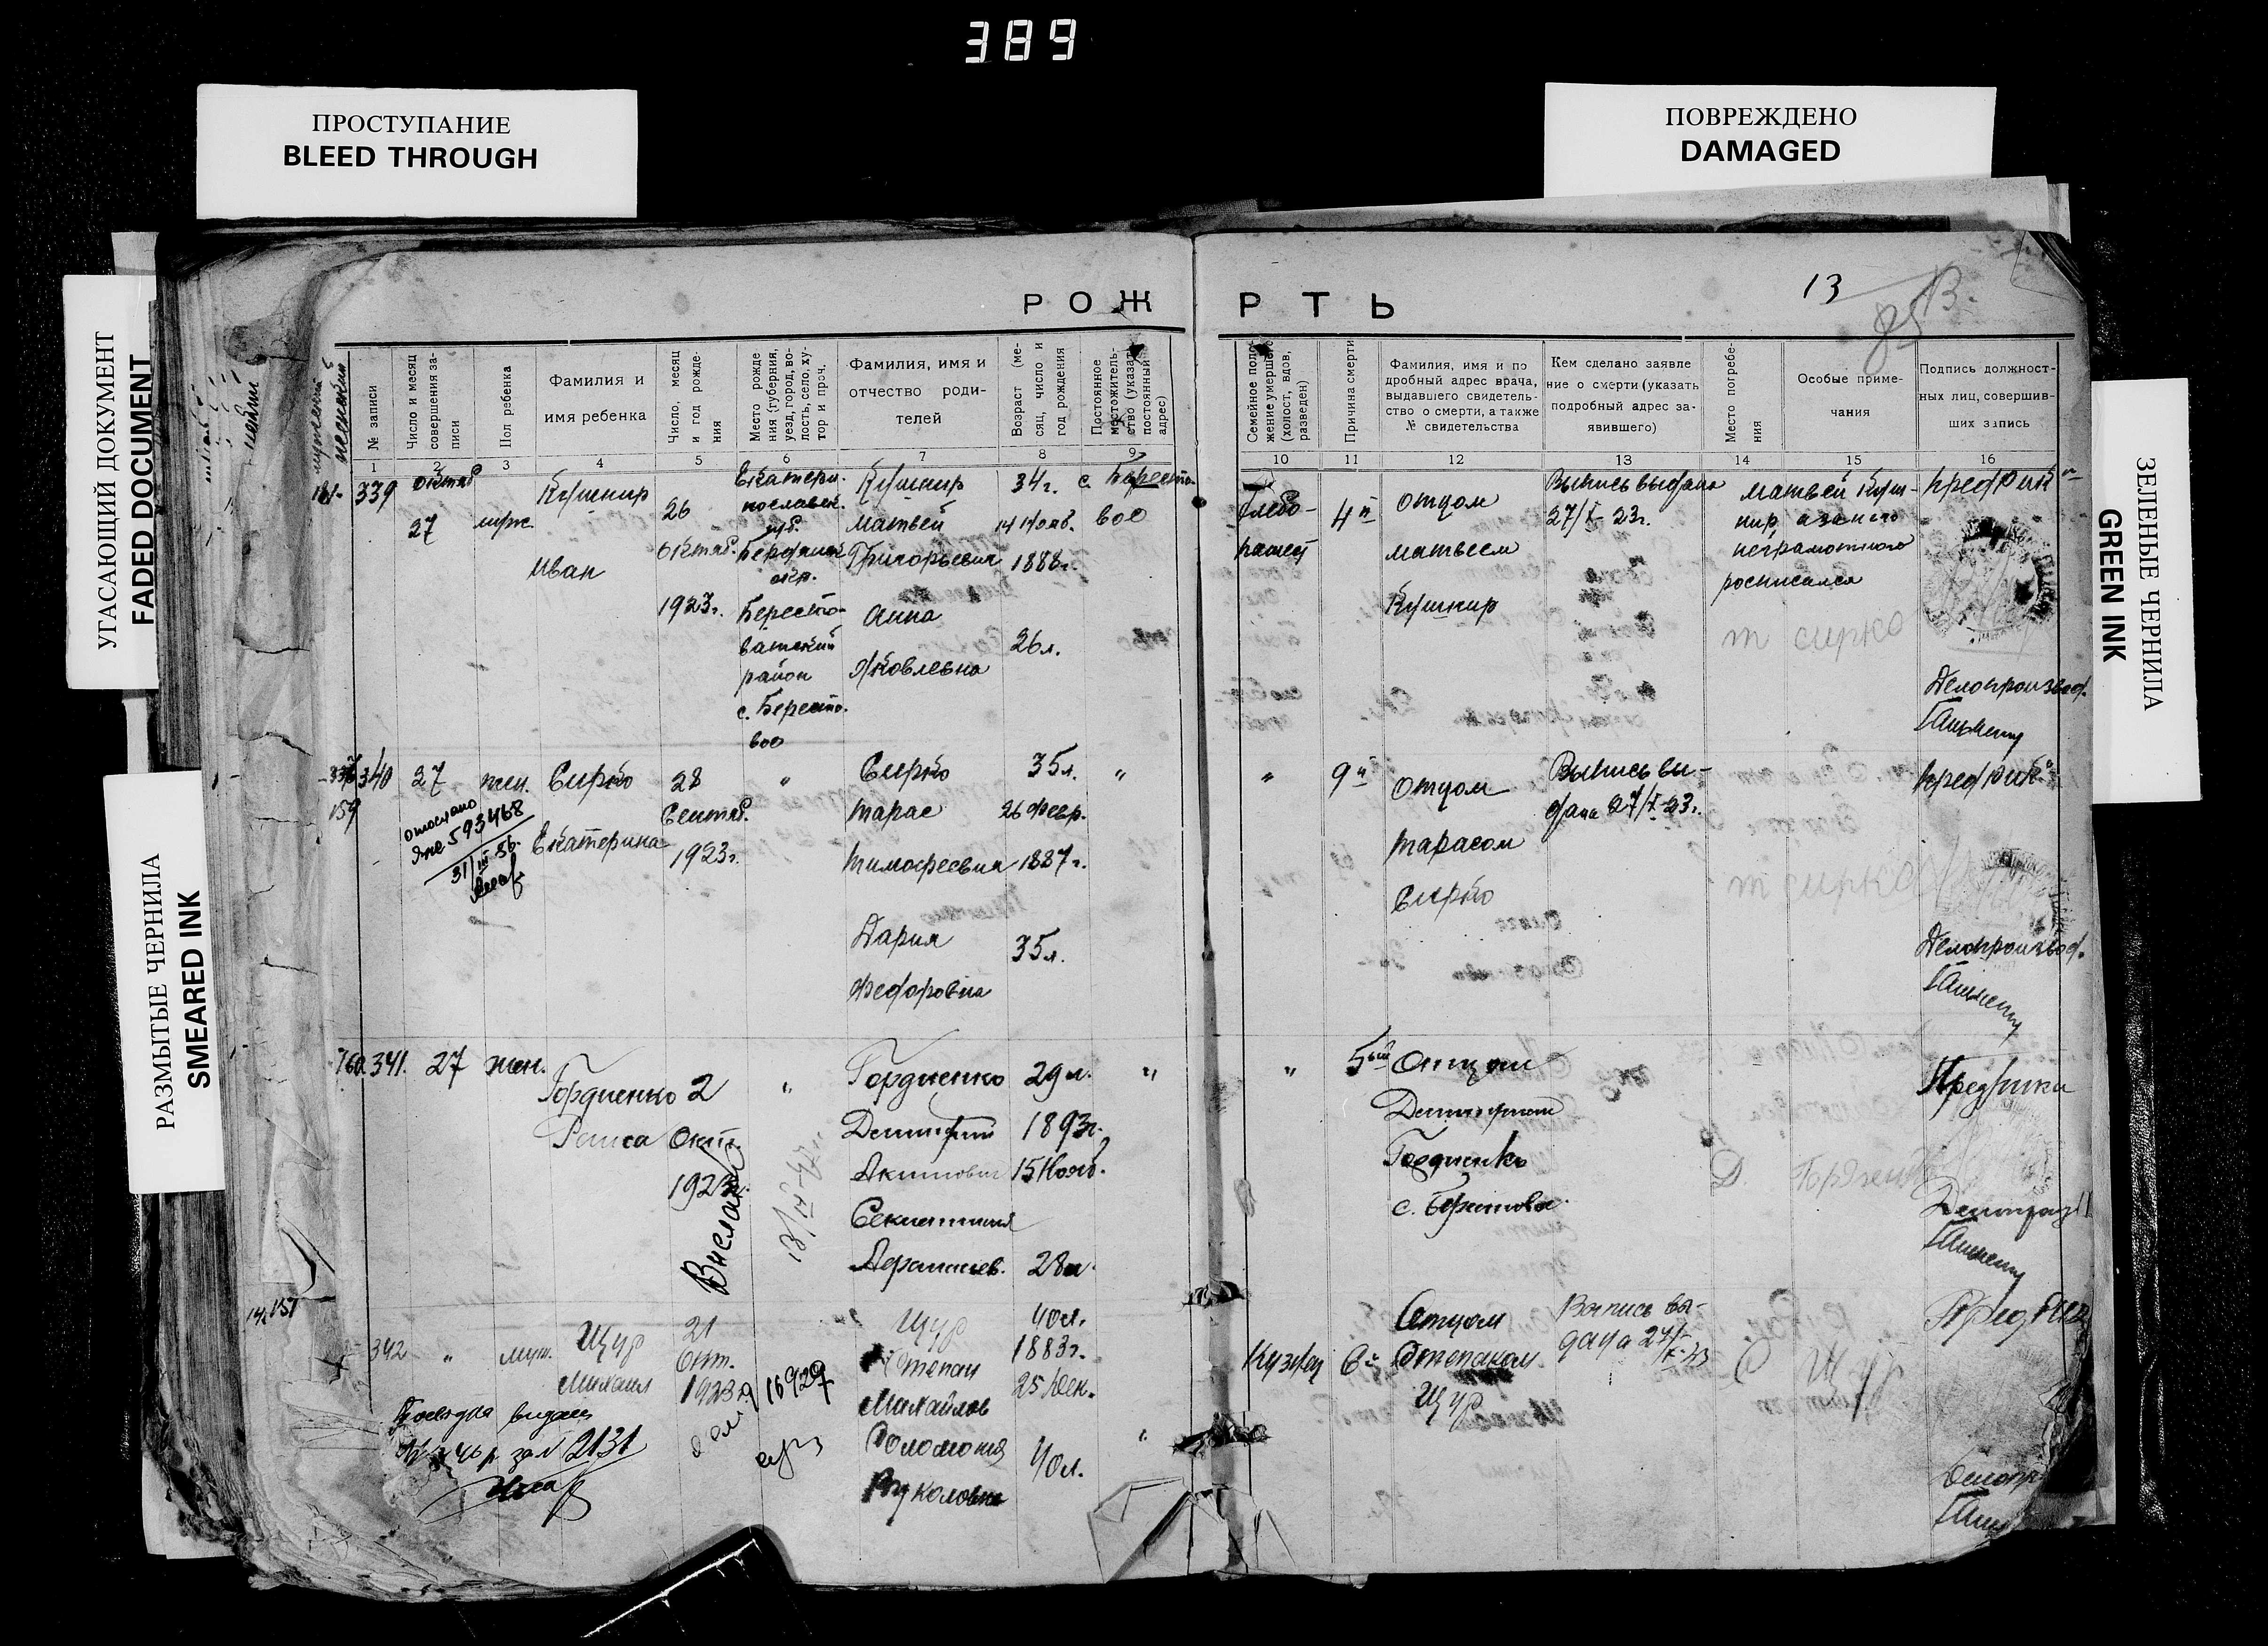 389
ПРОСТУПАНИЕ
BLEED THROUGH
ПОВРЕЖДЕНО
DAMAGED
УГАСАЮЩИЙ ДОКУМЕНТ
FADED DOCUMENT
РАЗМЫТЫЕ ЧЕРНИЛА
SMEARED INK
ЗЕЛЕНЫЕ ЧЕРНИЛА
GREEN INK
13
85
РОЖ
РТЬ
мужской
женский
№ записи
Число и месяц совершения записи
Пол ребенка
Фамилия и имя ребенка
Число, месяц и год рождения
Место рождения (губерния, уезд, город, волость, село, хутор и проч.
Фамилия, имя и отчество родителей
Возраст (месяц, число и год рождения
Постоянное местожительство (указать постоянный адрес)
Семейное положение умершего (холост, вдов, разведен)
Причина смерти
Фамилия, имя и подробный адрес врача, выдавшего свидетельство о смерти, а также № свидетельства
Кем сделано заявление о смерти (указать подробный адрес заявившего)
Место погребения
Особые примечания
Подпись должностных лиц, совершивших запись
1 2 3 4 5 6 7 8 9 10 11 12 13 14 15 16
181-
339
Октяб
27
муж.
Кушнир
Иван
26
Октяб.
1923г.
Екатери-
нославск.
губ.
Бердянск
окр.
Бересто-
ватский
район
с. Бересто-
вое
Кушнир
Матвей
Григорьевич
Анна
Яковлевна
34г.
14 Нояб.
1888г.
26л.
с. Бересто-
вое
Хлебо-
пашец
4й
Отцом
Матвеем
Кушнир
Выпись выдана
27/X-23г.
Матвей Куш-
нир а за него
неграмотного
росписался
т сирко
Пред Рик"
Делопроизвод.
159
340
27
жен.
Сирко
Екатерина
28
Сентяб.
1923г.
"
Сирко
Тарас
Тимофеевич
Дария
Федоровна
35л.
26 Февр.
1887г.
35л.
"
отослано
593468
31/III 56.
"
9й
Отцом
Тарасом
Сирко
Выпись вы-
дана 27/X-23г.
т сирко
Пред Рик"
Делопроизвод.
160
341.
27
жен.
Гордиенко
Раиса
2
Окт.
1923г.
"
Гордиенко
Димитрий
Акимович
Афанасьев.
29л.
1893г.
15 Нояб.
28л.
"
"
5ый
Отцом
Димитрием
Гордиенко
с. Берестовое
Д. Гордиенко
142
157
342
"
муж.
Щур
Михаил
21
Окт.
1923г.
Щур
Степан
Михайлов
Соломония
Вуколовна
40л.
1883г.
25 Дек.
40л.
"
16929
46 р за N 2131
Кузнец
6й
Отцом
Степаном
Щур
Выпись вы-
дана 27/X-23
С Щур
Пред Рик